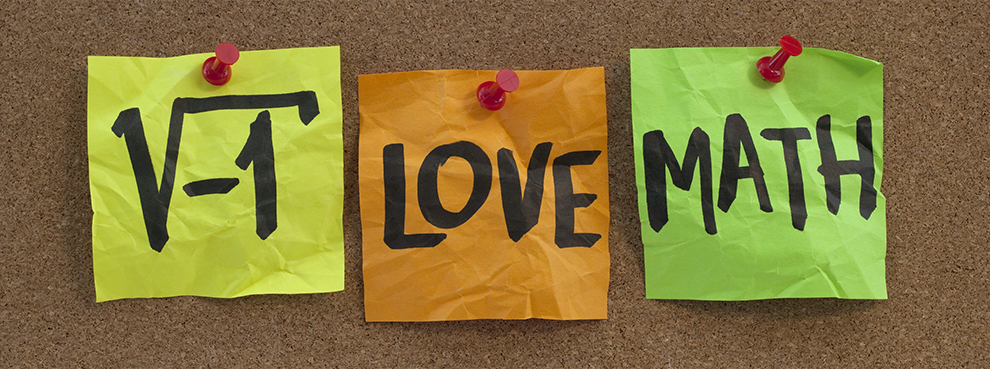 √-1 LOVE MATH